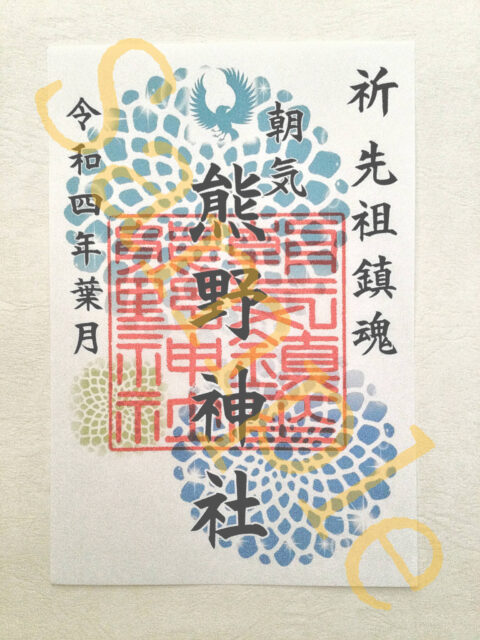 祈先祖鎮魂
朝気
熊野神社
令和四年葉月
Sample